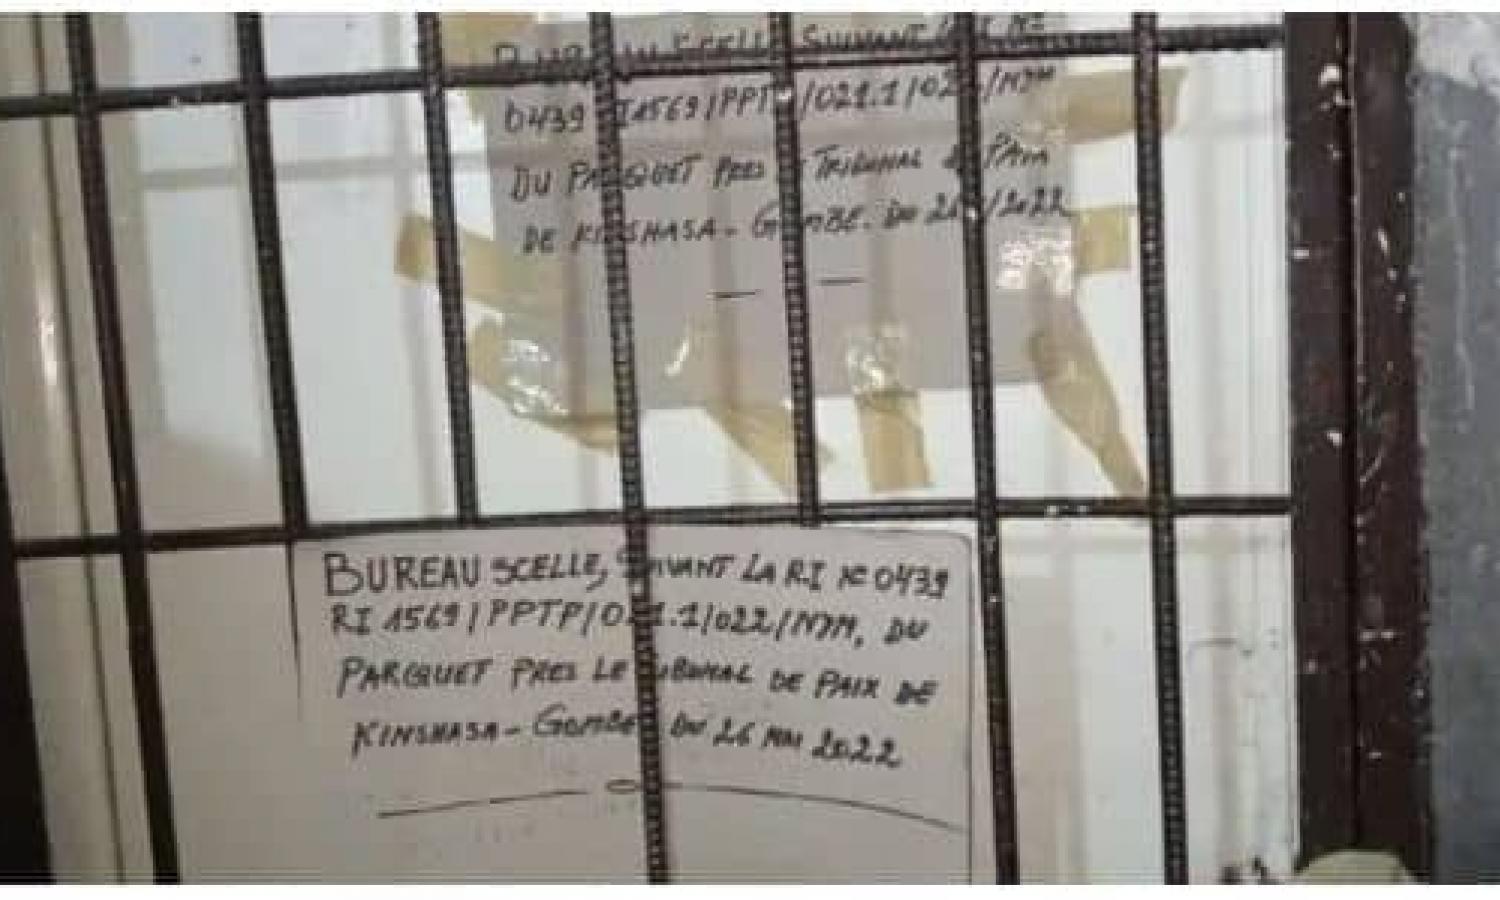 BUREAU SCELLE SUIVANT LA RI N°
0439 RI1569/PPTP/021.1/022/NJM
DU PARQUET PRES LE TRIBUNAL DE PAIX
DE KINSHASA - GOMBE. DU 26/ /2022
BUREAU SCELLE, SUIVANT LA RI N° 0439
RI 1569/PPTP/021.1/022/NJM, DU
PARQUET PRES LE TRIBUNAL DE PAIX DE
KINSHASA - GOMBE DU 26 MAI 2022